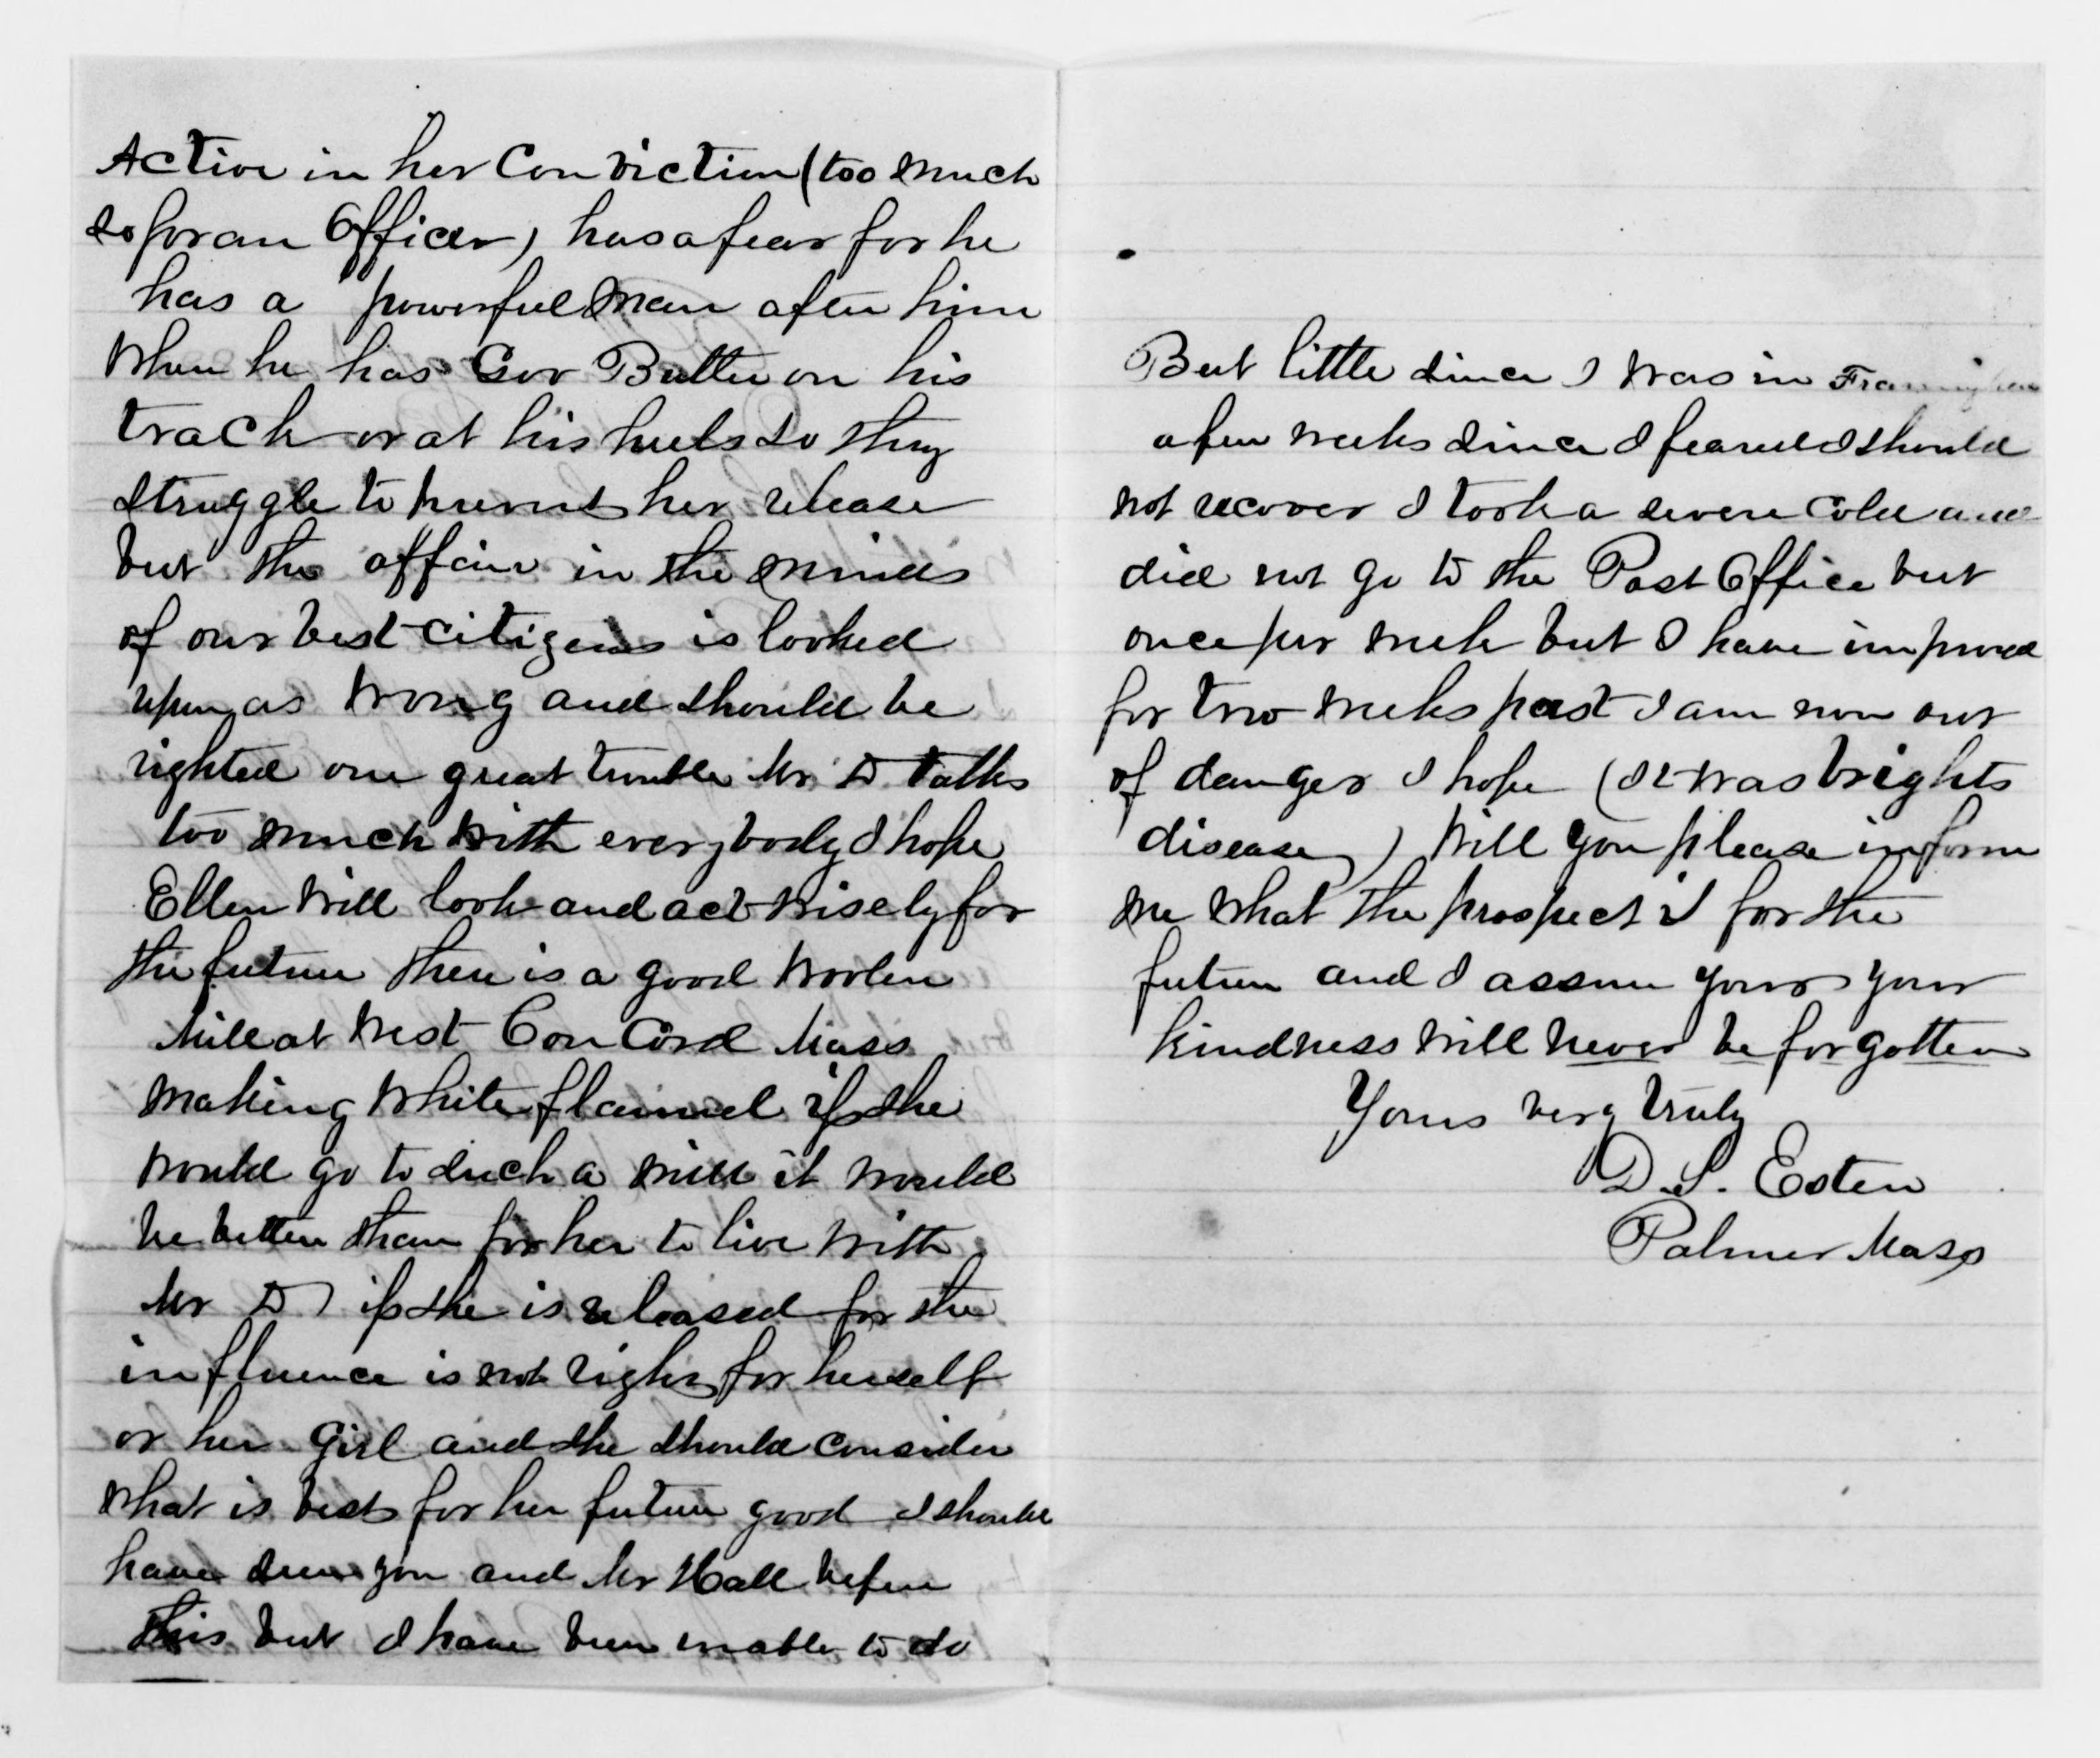 Active in her Conviction (too much
so for an Officer) has a fear for he
has a powerful man after him
When he has Gov Butler on his
track or at his heels so they
struggle to prevent her release
but the affair in the minds
of our best citizens is looked
upon as wrong and should be
righted one great trouble Mr D talks
too much with everybody I hope
Ellen will look and act wisely for
the future there is a good woolen
Mill at West Concord Mass
making white flannel if she
would go to such a mill it would
be better than for her to live with
Mr D) if she is released for the
influence is not right for herself
or her girl and she should consider
what is best for her future good I should
have seen you and Mr Hall before
this but I have been unable to do
But little since I was in Framingham
a few weeks since I feared I should
not recover I took a severe cold and
did not go to the Post Office but
once per week but I have improved
for two weeks past I am now out
of danger I hope (It was brights
disease) Will you please inform
me what the prospect is for the
future and I assure yours your
kindness will never be forgotten
Yours very truly
D. S. Esten
Palmer Mass